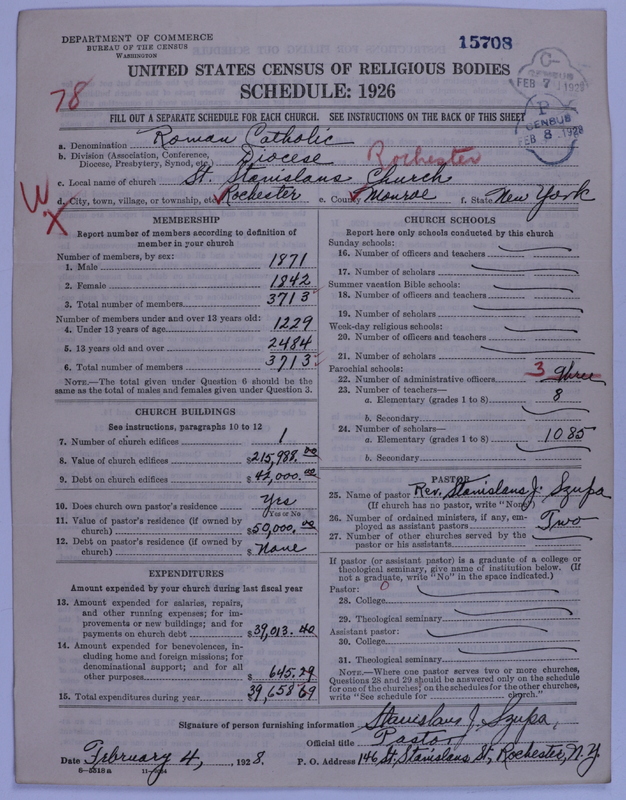 DEPARTMENT OF COMMERCE
BUREAU OF THE CENSUS
WASHINGTON
15708
UNITED STATES CENSUS OF RELIGIOUS BODIES
SCHEDULE: 1926
C-
CENSUS
FEB 7 1928
P
CENSUS
FEB 8 1928
78
FILL OUT A SEPARATE SCHEDULE FOR EACH CHURCH. SEE INSTRUCTIONS ON THE BACK OF THIS SHEET
a. Denomination Roman Catholic
b. Division (Association, Conference, Diocese, Presbytery, Synod, etc.) Diocese Rochester
c. Local name of church St. Stanislaus Church
d. City, town, village, or township, etc. Rochester e. County Monroe f. State New York
W
X
MEMBERSHIP
Report number of members according to definition of
member in your church
Number of members, by sex:
1. Male 1871
2. Female 1842
3. Total number of members 3713
Number of members under and over 13 years old:
4. Under 13 years of age 1229
5. 13 years old and over 2484
6. Total number of members 3713
NOTE.—The total given under Question 6 should be
the same as the total of males and females given under Question 3.
CHURCH BUILDINGS
See instructions, paragraphs 10 to 12
7. Number of church edifices 1
8. Value of church edifices $215,988.00
9. Debt on church edifices $42,000.00
10. Does church own pastor's residence? Yes
(Yes or No)
11. Value of pastor's residence (if owned by
church) $50,000.00
12. Debt on pastor's residence (if owned by
church) $ None
EXPENDITURES
Amount expended by your church during last fiscal year
13. Amount expended for salaries, repairs,
and other running expenses; for im-
provements or new buildings; and for
payments on church debt $39,013.40
14. Amount expended for benevolences, in-
cluding home and foreign missions; for
denominational support; and for all
other purposes $645.29
15. Total expenditures during year $39,658.69
CHURCH SCHOOLS
Report here only schools conducted by this church
Sunday schools:
16. Number of officers and teachers
17. Number of scholars
Summer vacation Bible schools:
18. Number of officers and teachers
19. Number of scholars
Week-day religious schools:
20. Number of officers and teachers
21. Number of scholars
Parochial schools:
22. Number of administrative officers 3 Three
23. Number of teachers—
a. Elementary (grades 1 to 8) 8
b. Secondary
24. Number of scholars—
a. Elementary (grades 1 to 8) 1085
b. Secondary
PASTOR
25. Name of pastor Rev. Stanislaus J. Szupa
(If church has no pastor, write "None")
26. Number of ordained ministers, if any, em-
ployed as assistant pastors Two
27. Number of other churches served by the
pastor or his assistants
If pastor (or assistant pastor) is a graduate of a college or
theological seminary, give name of institution below. (If
not a graduate, write "No" in the space indicated.)
Pastor: 0
28. College
29. Theological seminary
Assistant pastor:
30. College
31. Theological seminary
NOTE.—Where one pastor serves two or more churches,
Questions 28 and 29 should be answered only on the schedule
for one of the churches; on the schedules for the other churches,
write "See schedule for church."
Signature of person furnishing information Stanislaus J. Szupa,
Official title Pastor
Date February 4, 1928. P. O. Address 146 St. Stanislaus St., Rochester, N. Y.
8—5318a